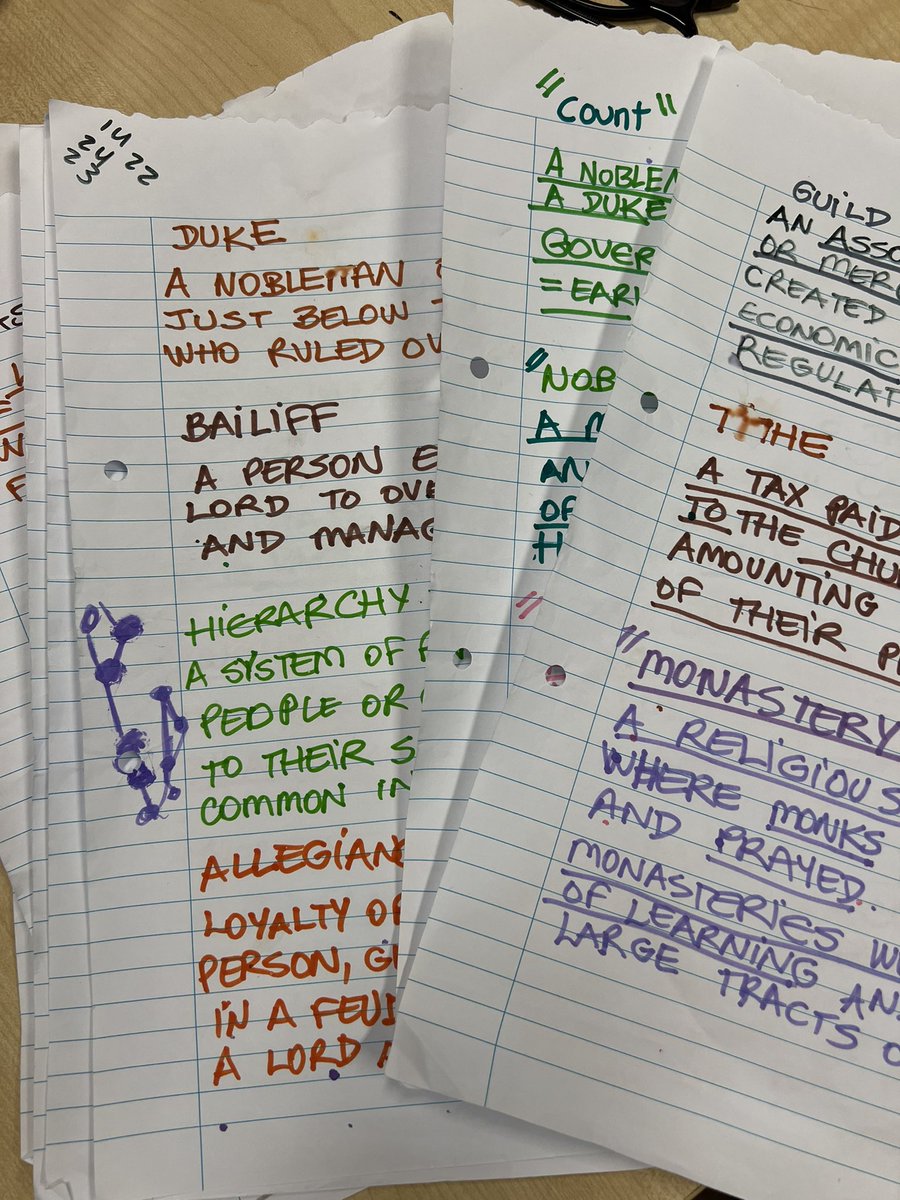 14
24 22
23
DUKE
A NOBLEMAN
JUST BELOW
WHO RULED OV
BAILIFF
A PERSON E
LORD TO OVE
AND MANAG
HIERARCHY
A SYSTEM OF
PEOPLE OR
TO THEIR S
COMMON IN
ALLEGIANC
LOYALTY OF
PERSON, GI
IN A FEUD
A LORD
"Count"
A NOBLEM
A DUKE
GOVER
= EARL
"NOB
A M
AN
OF
H
"
GUILD
AN ASSO
OR MERC
CREATED
ECONOMIC
REGULAT
TITHE
A TAX PAID
TO THE CHU
AMOUNTING
OF THEIR P
"MONASTERY
A RELIGIOUS
WHERE MONKS
AND PRAYED.
MONASTERIES W
OF LEARNING AN
LARGE TRACTS O